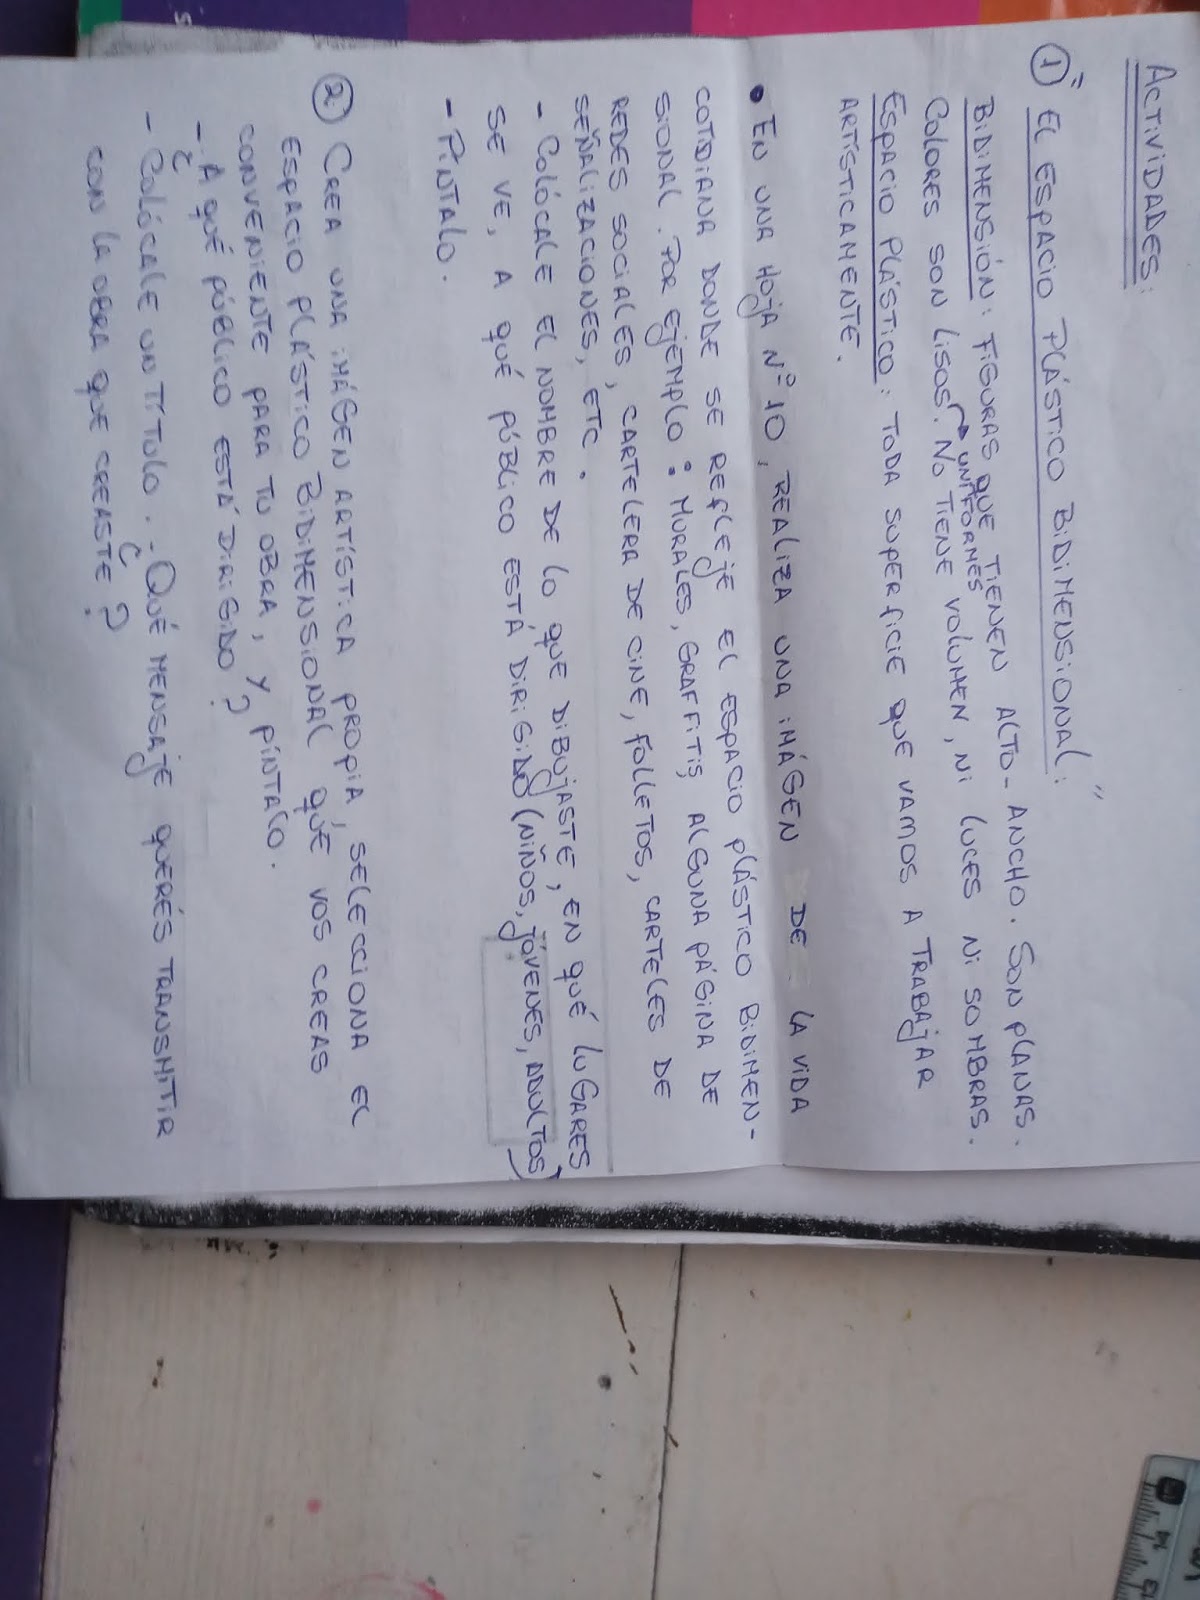 ACTIVIDADES:
① "EL ESPACIO PLÁSTICO BIDIMENSIONAL:"
BIDIMENSIÓN: FIGURAS QUE TIENEN ALTO-ANCHO. SON PLANAS.
→ UNIFORMES
COLORES SON LISOS. NO TIENE VOLUMEN, NI LUCES NI SOMBRAS.
ESPACIO PLÁSTICO: TODA SUPERFICIE QUE VAMOS A TRABAJAR
ARTÍSTICAMENTE.
• EN UNA HOJA Nº 10, REALIZA UNA IMÁGEN DE LA VIDA
COTIDIANA DONDE SE REFLEJE EL ESPACIO PLÁSTICO BIDIMEN-
SIONAL. POR EJEMPLO: MURALES, GRAFFITIS, ALGUNA PÁGINA DE
REDES SOCIALES, CARTELERA DE CINE, FOLLETOS, CARTELES DE
SEÑALIZACIONES, ETC.
- COLÓCALE EL NOMBRE DE LO QUE DIBUJASTE, EN QUÉ LUGARES
SE VE, A QUÉ PÚBLICO ESTÁ DIRIGIDO (NIÑOS, JÓVENES, ADULTOS)
- PINTALO.
② CREA UNA IMÁGEN ARTÍSTICA PROPIA, SELECCIONA EL
ESPACIO PLÁSTICO BIDIMENSIONAL QUE VOS CREAS
CONVENIENTE PARA TU OBRA, Y PÍNTALO.
- ¿A QUÉ PÚBLICO ESTÁ DIRIGIDO?
- COLÓCALE UN TÍTULO. - ¿QUÉ MENSAJE QUERÉS TRANSMITIR
CON LA OBRA QUE CREASTE?